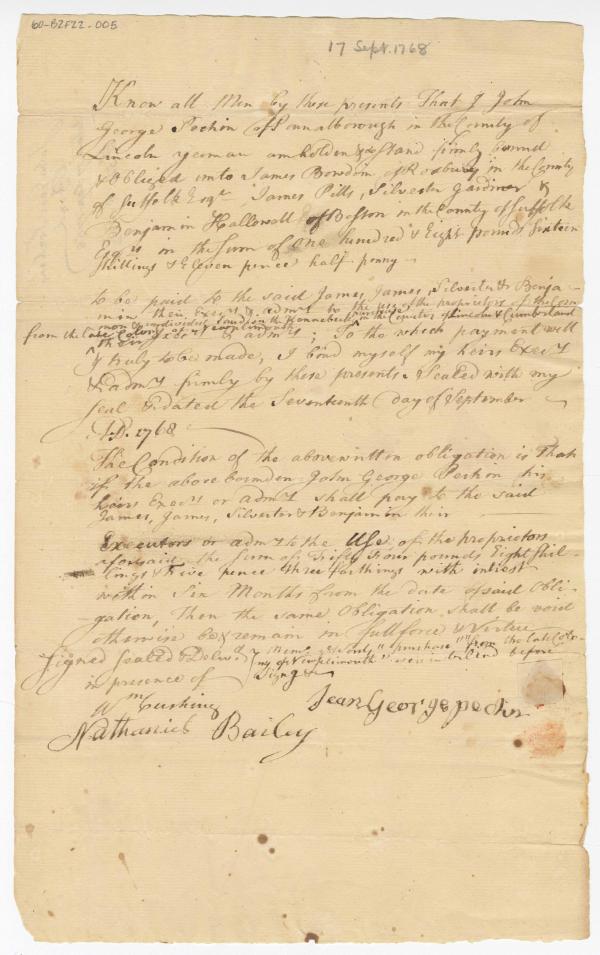 60-B2F22-005
17 Sept. 1768
Know all Men by these presents That I John
George Pechin of Pownalborough in the County of
Lincoln yeoman am holden & stand firmly bound
& Obliged unto James Bowdoin of Roxbury in the County
of Suffolk Esqr. James Pitts, Silvester Gardiner &
Benjamin Hallowell of Boston in the County of Suffolk
Esqrs in the sum of One hundred & Eight pounds Sixteen
Shillings & Eleven pence half penny
to be paid to the said James, James, Silvester & Benja-
min their Execrs & admrs to the use of the proprietors of the Com
mon & undivided Land in the Kennebeck purchase in the Counties of Lincoln & Cumberland
from the late Colony of New plimouth
their Execrs & admrs; To the which payment well
& truly to be made, I bind myself my heirs Execrs
& admrs firmly by these presents Sealed with my
seal & dated the Seventeenth Day of September
A.D. 1768
The Condition of the above written obligation is That
if the above bounden John George Pechin his
heirs Execrs or admrs shall pay to the said
James, James, Silvester & Benjamin their
Executors or admrs to the Use of the proprietors
aforsaid the sum of Fifty Four pounds Eight Shil-
lings & Five pence three farthings with interest
within Six Months from the date of said Obli-
gation, Then the same Obligation shall be void
otherwise be & remain in full force & Virtue
Signed Sealed & Delivd
in presence of
Memo "purchase" "from the late Colo-
ny of New plimouth" were interlined before
Signg
Wm Cushing
Jean George pechin
Nathaniel Bailey